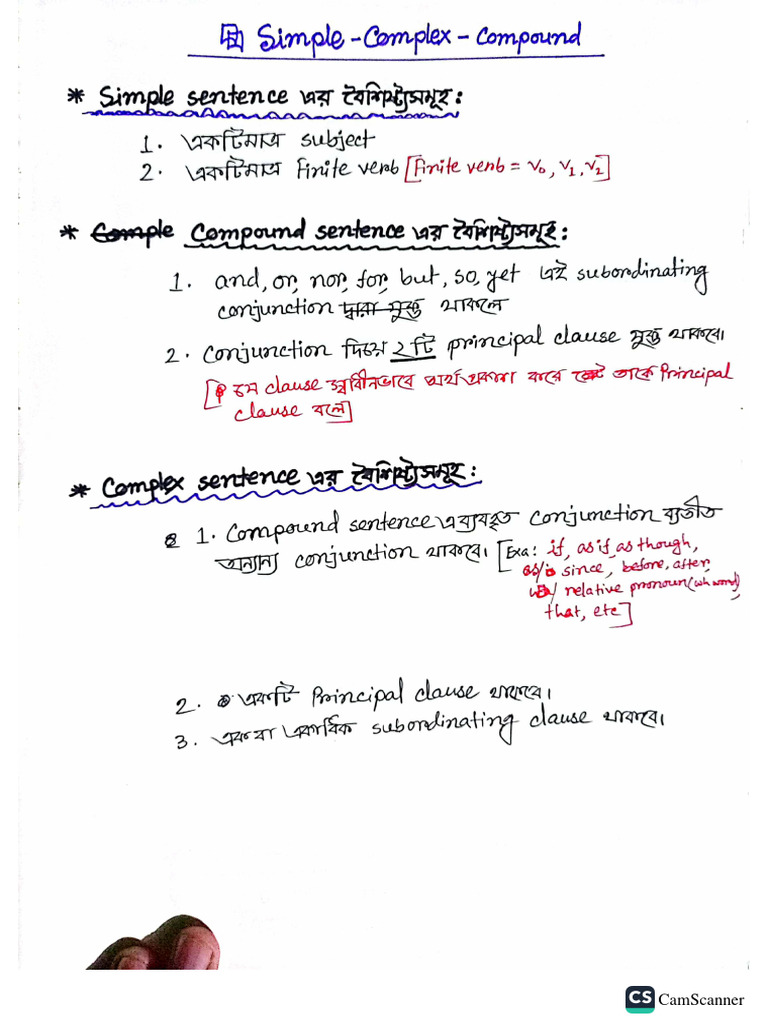 Simple-Complex-Compound
* Simple sentence এর বৈশিষ্ট্যসমূহ:
1. একটিমাত্র subject
2. একটিমাত্র Finite verb [Finite verb = V₀, V₁, V₂]
* Comple Compound sentence এর বৈশিষ্ট্যসমূহ:
1. and, or, nor, for, but, so, yet এই subordinating
conjunction দ্বারা যুক্ত থাকলে
2. Conjunction দিয়ে ২টি principal clause যুক্ত থাকবে।
[ clause স্বাধীনভাবে অর্থ প্রকাশ করে তাকে Principal
clause বলে]
* Complex sentence এর বৈশিষ্ট্যসমূহ:
1. Compound sentence এ ব্যবহৃত conjunction ব্যতীত
অন্যান্য conjunction থাকবে। [Exa: if, as if, as though,
as/ since, before, after,
relative pronoun (wh word),
that, etc]
2. একটি Principal clause থাকবে।
3. এক বা একাধিক subordinating clause থাকবে।
CS CamScanner